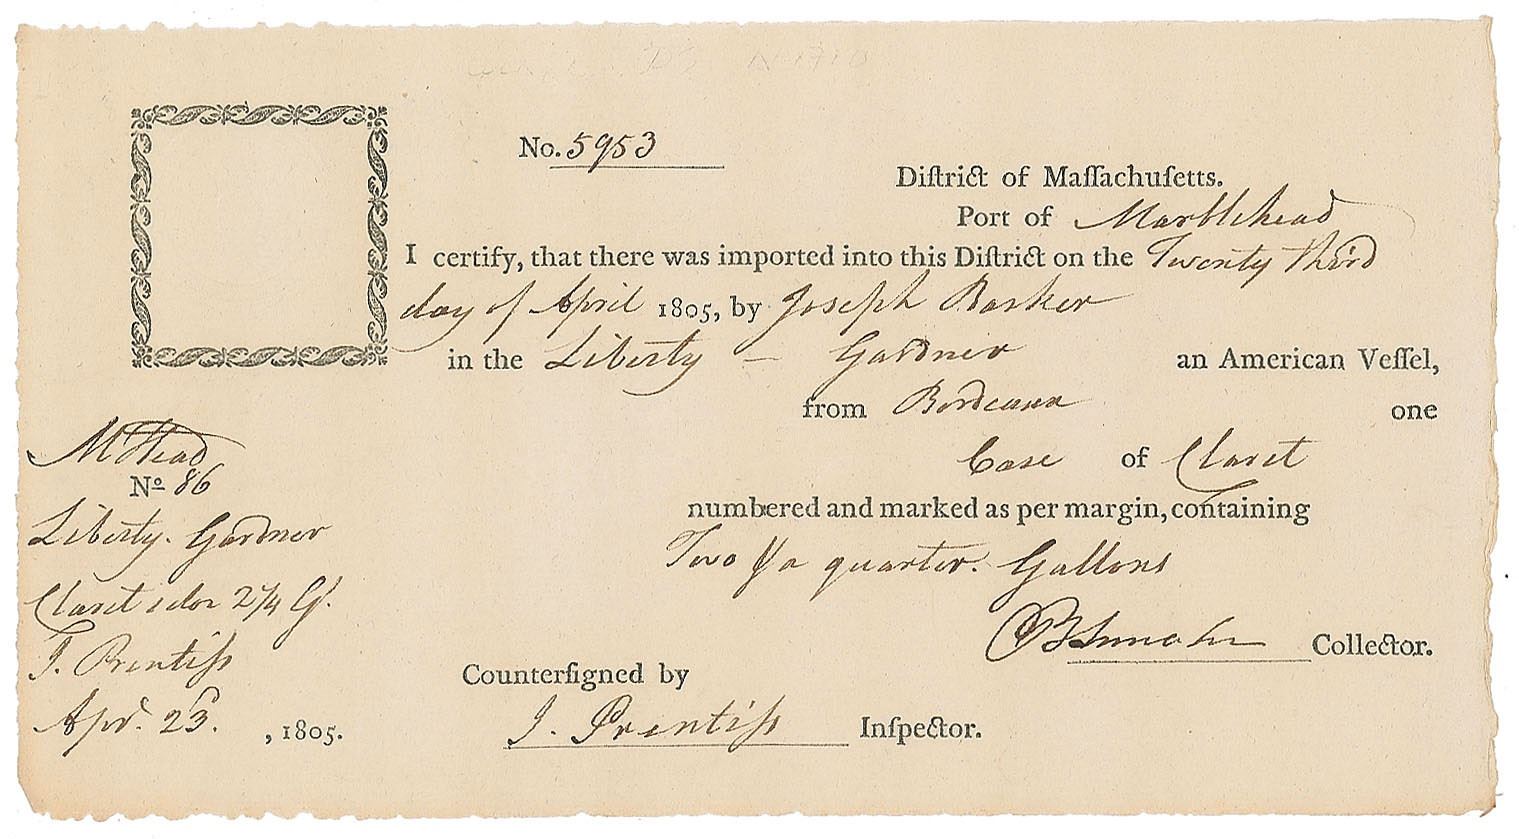 No. 5953
Diſtrict of Maſſachuſetts.
Port of Marblehead
I certify, that there was imported into this Diſtrict on the Twenty third
day of April 1805, by Joseph Barker
in the Liberty – Gardner an American Veſſel,
from Bordeaux one
Case of Claret
numbered and marked as per margin, containing
Two & a quarter. Gallons
Collector.
Counterſigned by
J. Prentiſs Inſpector.
M'Head
No 86
Liberty. Gardner
Claret 2 1/4 Gs.
J. Prentiſs
Apr. 23d. , 1805.